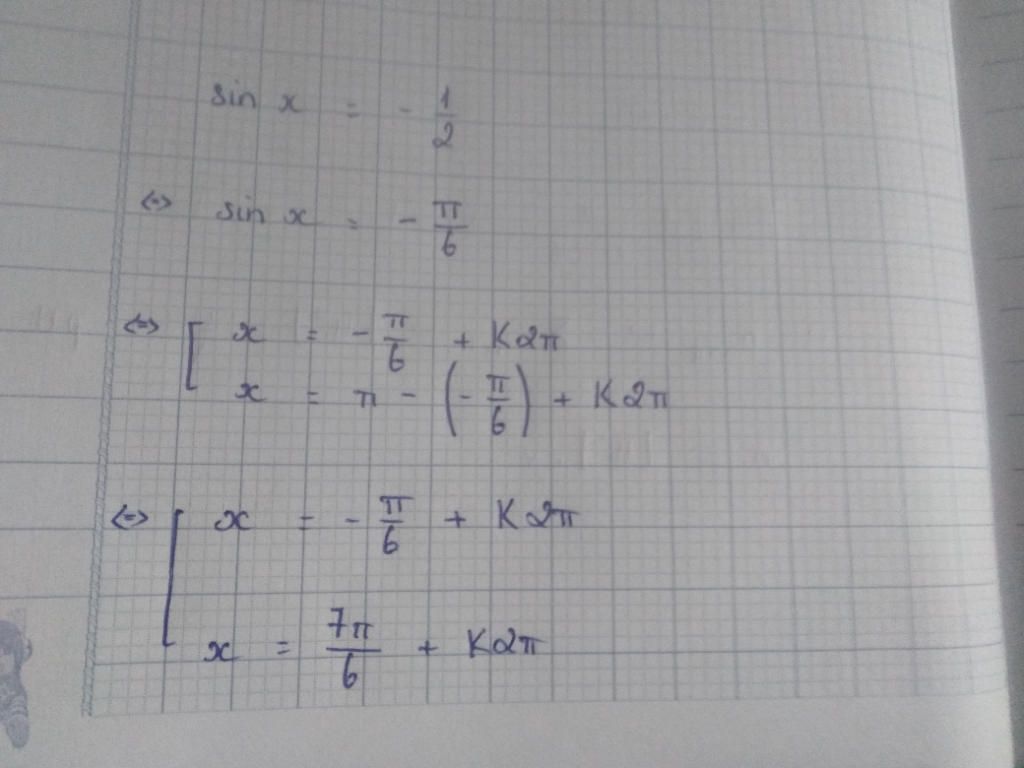 sin x = - 1/2
<=> sin x = - π/6
<=> [ x = - π/6 + K2π
x = π - (- π/6) + K2π
<=> [ x = - π/6 + K2π
x = 7π/6 + K2π